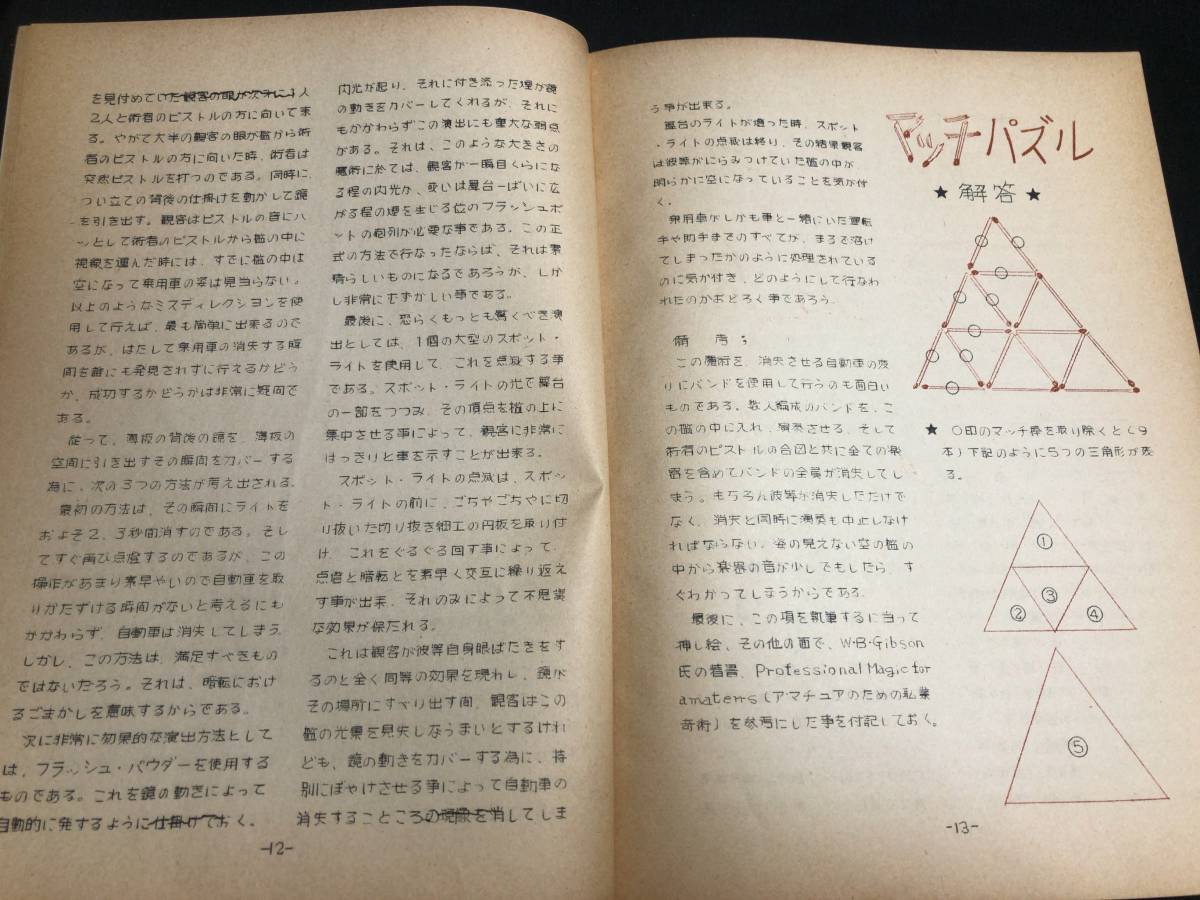 を見付めていた観客の眼が次々に1人
2人と術者のピストルの方に向いて来
る。やがて大半の観客の眼が檻から術
者のピストルの方に向いた時、術者は
突然ピストルを打つのである。同時に、
つい立ての背後の仕掛けを動かして鏡
を引き出す。観客はピストルの音にハ
ッとして術者のピストルから檻の中に
視線を運んだ時には、すでに檻の中は
空になって乗用車の姿は見当らない。
以上のようなミスディレクションを使
用して行えば、最も簡単に出来るので
あるが、はたして乗用車の消失する瞬
間を誰にも発見されずに行えるかどう
か、成功するかどうかは非常に疑問で
ある。
従って、薄板の背後の鏡を、薄板の
空間に引き出すその瞬間をカバーする
為に、次の3つの方法が考え出される。
最初の方法は、その瞬間にライトを
およそ2、3秒間消すのである。そし
てすぐ再び点燈するのであるが、この
操作があまり素早やいので自動車を取
りかたずける時間がないと考えるにも
かかわらず、自動車は消失してしまう。
しかし、この方法は、満足すべきもの
ではないだろう。それは、暗転におけ
るごまかしを意味するからである。
次に非常に効果的な演出方法として
は、フラッシュ・パウダーを使用する
ものである。これを鏡の動きによって
自動的に発するように仕掛けておく。
-12-
内光が起り、それに付き添った煙が鏡
の動きをカバーしてくれるが、それに
もかかわらずこの演出にも重大な弱点
がある。それは、このような大きさの
魔術に於ては、観客が一瞬目くらにな
る程の内光か、或いは舞台一ぱいに広
がる程の煙を生じる位のフラッシュポ
ットの砲列が必要な事である。この正
式の方法で行なったならば、それは素
晴らしいものになるであろうが、しか
し非常にむずかしい事である。
最後に、恐らくもっとも驚くべき演
出としては、1個の大型のスポット・
ライトを使用して、これを点滅する事
である。スポット・ライトの光で舞台
の一部をつつみ、その頂点を檻の上に
集中させる事によって、観客に非常に
はっきりと車を示すことが出来る。
スポット・ライトの点滅は、スポッ
ト・ライトの前に、ごちゃごちゃに切
り抜いた切り抜き細工の円板を取り付
け、これをぐるぐる回す事によって、
点燈と暗転とを素早く交互に繰り返え
す事が出来、それのみによって不思議
な効果が保たれる。
これは観客が彼等自身眼ばたきをす
るのと全く同等の効果を現わし、鏡が
その場所にすべり出す間、観客はこの
檻の光景を見失しなうまいとするけれ
ども、鏡の動きをカバーする為に、特
別にぼやけさせる事によって自動車の
消失することころの現象を消してしま
う事が出来る。
舞台のライトが遭った時、スポット
・ライトの点滅は終り、その結果観客
は彼等がにらみつけていた檻の中が
明らかに空になっていることを気が付
く。
乗用車がしかも車と一緒にいた運転
手や助手までのすべてが、まるで溶け
てしまったかのように処理されている
のに気が付き、どのようにして行なわ
れたのかおどろく事であろう。
備考;
この魔術を、消失させる自動車の変
りにバンドを使用して行うのも面白い
ものである。数人編成のバンドを、こ
の檻の中に入れ、演奏させる、そして
術者のピストルの合図と共に全ての楽
器を含めてバンドの全員が消失してし
まう。もちろん彼等が消失しただけで
なく、消失と同時に演奏も中止しなけ
ればならない。姿の見えない空の檻の
中から楽器の音が少しでもしたら、す
ぐわかってしまうからである。
最後に、この項を執筆するに当って
挿し絵、その他の面で、W・B・Gibson
氏の著書、Professional Magic for
amaterrs(アマチュアのための私業
奇術)を参考にした事を付記しておく。
マッチパズル
★解答★
★ ○印のマッチ棒を取り除くと(9
本)下記のように5つの三角形が残
る。
①
② ③ ④
⑤
-13-